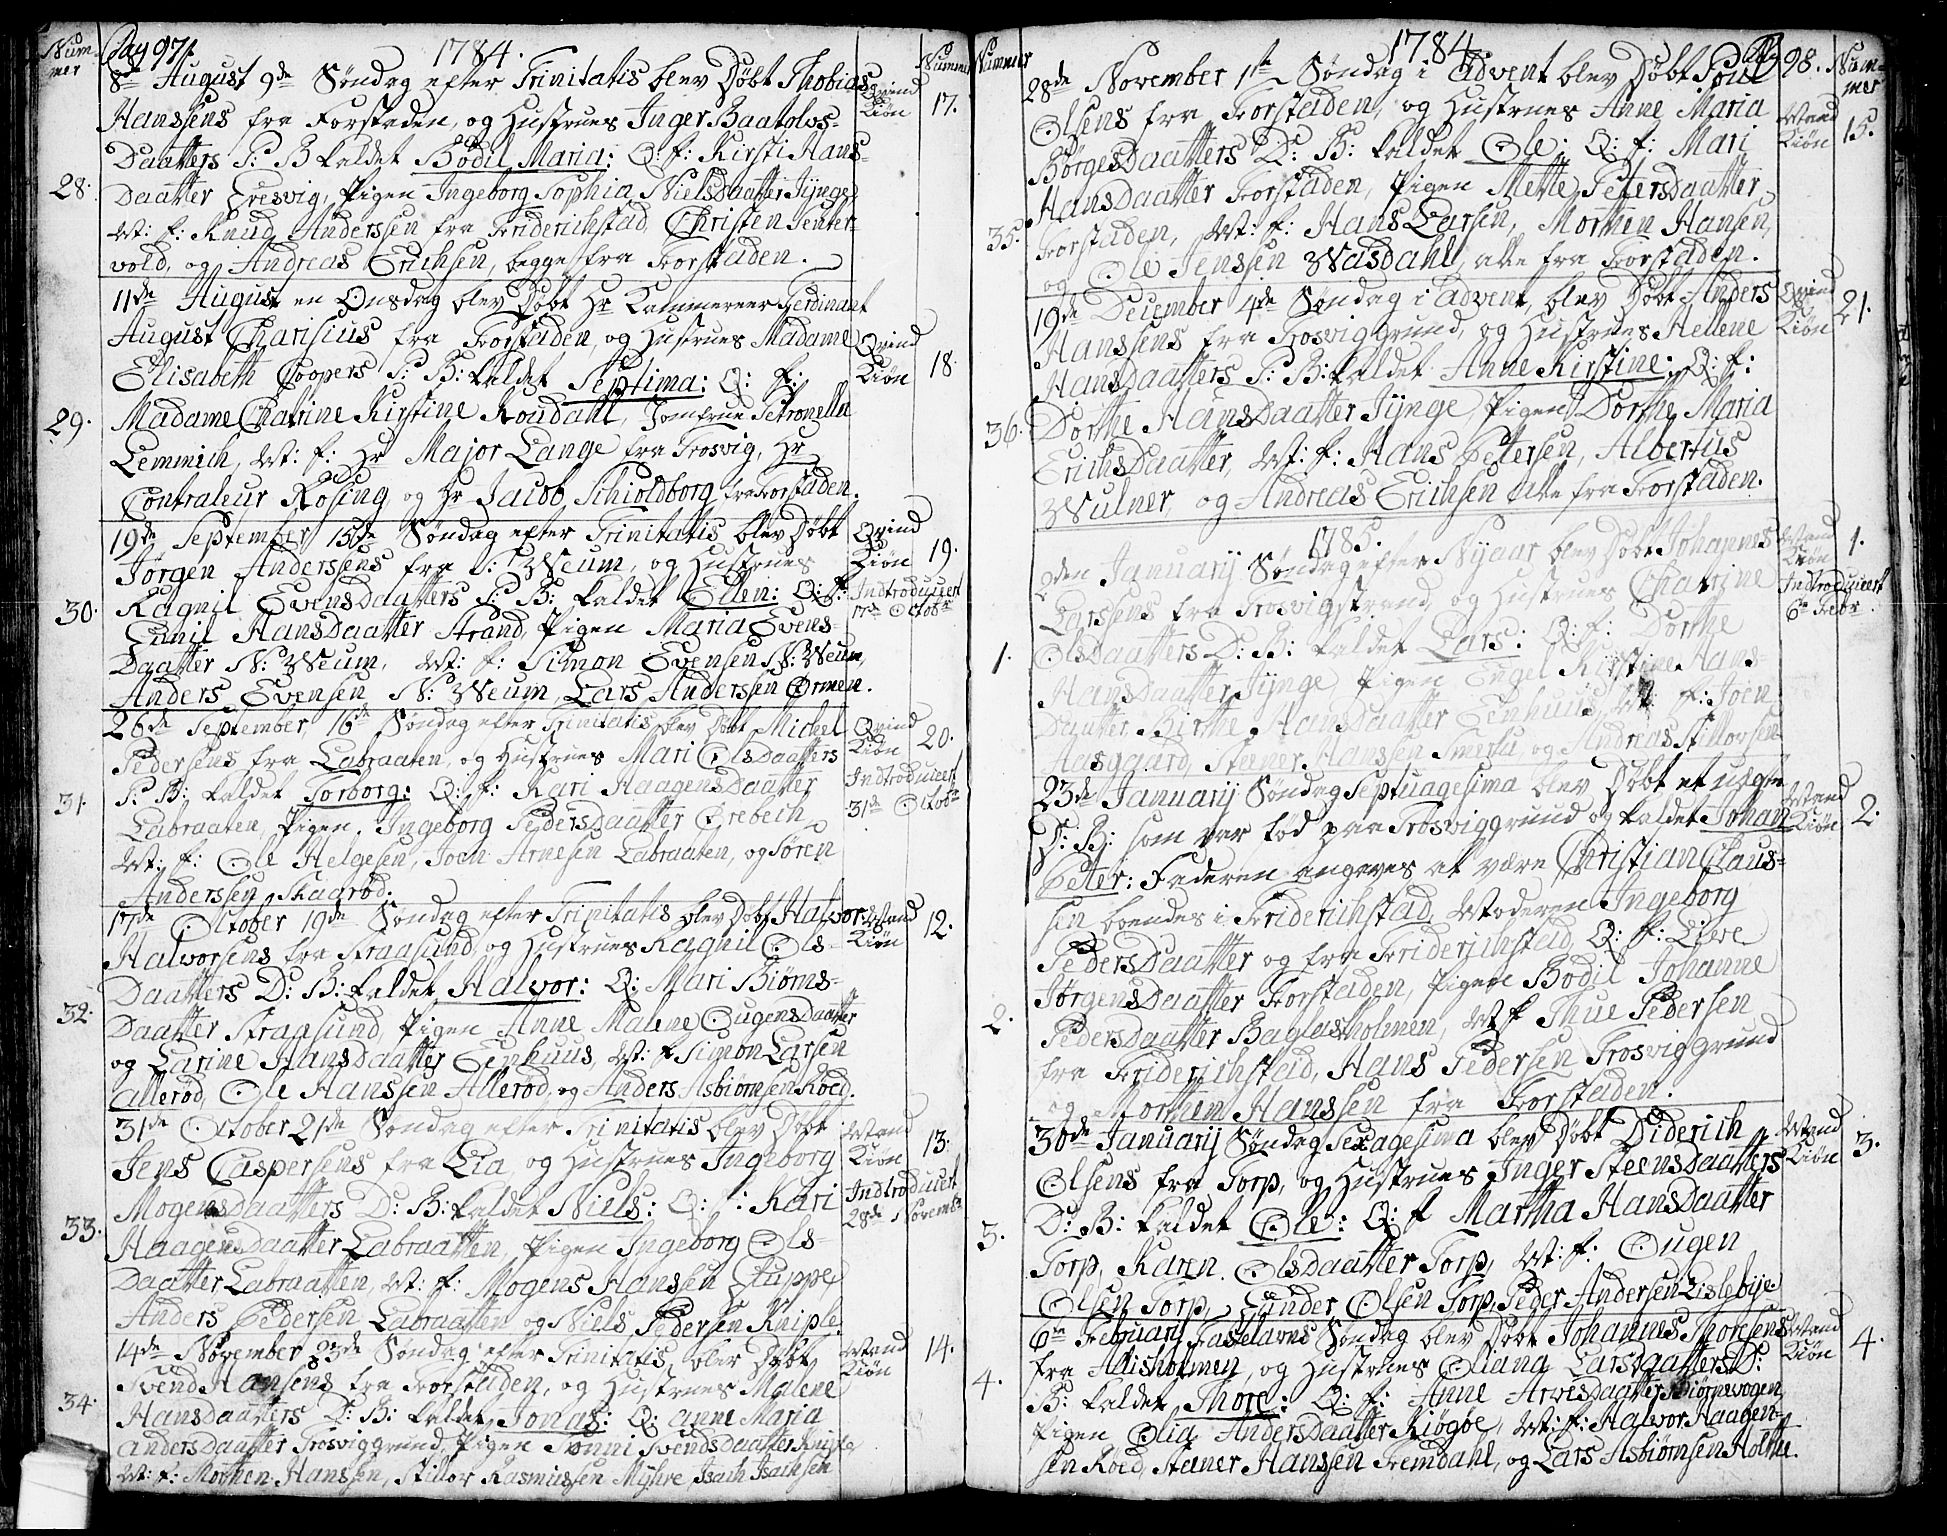 Num-
mer
Pag 97.
1784.
Nummer
8de August 9de Søndag efter Trinitatis blev Døbt Thobias
Hanssens fra Forstaden, og Hustrues Inger Baatolvs-
Daatters P: B kaldet Bodil Maria: Q: f: Kirsti Hans-
Daatter Eresvig, Pigen Ingeborg Sophia NielsDaatter Tÿnge
M: f: Knud Anderssen fra Friderichstad, Christen Tenter-
vold, og Andreas Erichsen, begge fra Forstaden.
28.
Qvind
Kiøn
17.
11de August en Onsdag blev Døbt Hr Kammereer Ferdinant
August Charisius fra Forstaden, og Hustrues Madame
Elisabeth Coopers P: B: kaldet Septima: Q: f:
Madame Chatrine Kirstine Roudahl, Jomfrue Petronella
Lemmich, M: f: Hr Major Lange fra Trosvig, Hr
Contraleur Rosing og Hr Jacob Schioldborg fra Forstaden.
29.
Qvind
Kiøn
18.
19de September 15de Søndag efter Trinitatis blev Døbt
Jørgen Andersens fra S: Weum, og Hustrues
Ragnil EvensDaatters P: B: kaldet Ellen: Q: f:
Gunil HansDaatter Strand, Pigen Maria Evens-
Daatter N: Weum, M: f: Simon Evensen N: Weum,
Anders Evensen N: Weum, Lars Anderssen Ormen.
30.
Qvind
Kiøn
Indtroduceert
17de Octobr
19.
26de September 16de Søndag efter Trinitatis blev Døbt Michel
Pedersens fra Labraaten, og Hustrues Mari OlsDaatters
P: B: kaldet Torborg: Q: f: Kari HaagensDaatter
Labraaten, Pigen Ingeborg PedersDaatter Ørebech
M: f: Ole Helgesen, Joen Arnesen Labraaten, og Søren
Anderssen Skaarød.
31.
Qvind
Kiøn
Indtroduceert
31de Octobr
20.
17de October 19de Søndag efter Trinitatis blev Døbt Halvor
Halvorsens fra Straasund, og Hustrues Ragnil Ols-
Daatters D: B: kaldet Halvor: Q: Mari Biørns-
Daatter Straasund, Pigen Anne Malene OugensDaatter
og Larine HansDaatter Eenhuus, M: f Simon Larsen
Allerød, Ole Hanssen Allerød, og Anders Asbiørnsen Roed.
32.
Mand
Kiøn
12.
31de October 21de Søndag efter Trinitatis blev Døbt
Jens Caspersens fra Lia, og Hustrues Ingeborg
MogensDaatters D: B: kaldet Niels: Q: f: Kari
HaagensDaatter Labraatten, Pigen Ingeborg Ols-
Daatter Labraatten, M: f: Mogens Hansen Stuppe
Anders Pedersen Labraatten og Niels Pedersen Kniple
33.
Mand
Kiøn
Indtroduceert
28de Novembr
13.
14de November 23de Søndag efter Trinitatis, blev Døbt
Svend Hansens fra Forstaden, og Hustrues Malene
HansDaatters D: B: kaldet Jonas: Q: Anne Maria
AndersDaatter Trosviggrund, Pigen Tonni SvendsDaatter Kniple
M: f: Morthen Hansen, Stillor Rasmussen Myhre, Isach Isachsen
34.
Mand
Kiøn
14.
Nummer
1784.
98.
Num-
mer
28de November 1ste Søndag i Advent blev Døbt Poul
Olsens fra Forstaden, og Hustrues Anne Maria
BørgesDaatters D: B: kaldet Ole: Q: f: Mari
HansDaatter Forstaden, Pigen Mette PetersDaatter
Forstaden, M: f: Hans Larsen, Morthen Hansen,
og Ole Jenssen Wasdahl, alle fra Forstaden.
35.
Mand
Kiøn
15.
19de December 4de Søndag i Advent blev Døbt Anders
Hanssens fra Trosviggrund, og Hustrues Hellene
HansDaatters P: B: kaldet Anne Kirstine: Q: f:
Dorthe HansDaatter Tÿnge, Pigen Dorthe Maria
ErichsDaatter, M: f: Hans Petersen, Albertus
Wulner, og Andreas Erichsen alle fra Forstaden.
36.
Qvind
Kiøn
21.
1785.
2den Januarij Søndag efter Nyaar blev Døbt Johannes
Larssens fra Trosvigstrand, og Hustrues Chatrine
OlsDaatters D: B: kaldet Lars: Q: f: Dorthe
HansDaatter Tÿnge Pigen Engel Kirstine Hans-
Daatter, Birthe HansDaatter Eenhuus, M: f: Joen
Aasgaard, Steener Hanssen Smertu, og Andreas Stillorsen
1.
Mand
Kiøn
Indtroduceert
6te Febr
1.
23de Januarij Søndag Septuagesima blev Døbt et uægte
D: B: som var fød paa Trosviggrund og kaldet Johan
Peter: Faderen angaves at være Christian Claus-
sen boendes i Friderichstad, Moderen Ingeborg
PedersDaatter og fra Friderichstad Q: f: Live
JørgensDaatter Forstaden, Pigen Bodil Johanne
PedersDaatter Baglasholmen, M f Thue Pedersen
fra Friderichstad, Hans Pedersen Trosviggrund
og Morthen Hanssen fra Forstaden.
2.
Mand
Kiøn
2.
30de Januarij Søndag Sexagesima blev Døbt Diderich
Olsens fra Torp, og Hustrues Inger SteensDaatters
D: B: kaldet Ole: Q: f Martha HansDaatter
Torp, Karen OlsDaatter Torp, M: f: Ougen
Olsen Torp, Gunder Olsen Torp, Peder Andersen Lislebye
3.
Mand
Kiøn
3.
6te Februarij Fastelavns Søndag blev Døbt Johannes Thoresens
fra Allisholmen, og Hustrues Oliana LarsDaatters D:
B: kaldet Thore: Q: f: Anne ArvesDaatter Biørnevogen
Pigen Olia AndersDaatter Kiøgøe, M: f: Halvor Haagen-
sen Roed, Steener Hanssen Fremdahl, og Lars Asbiørnsen Holthe.
4.
Mand
Kiøn
4.